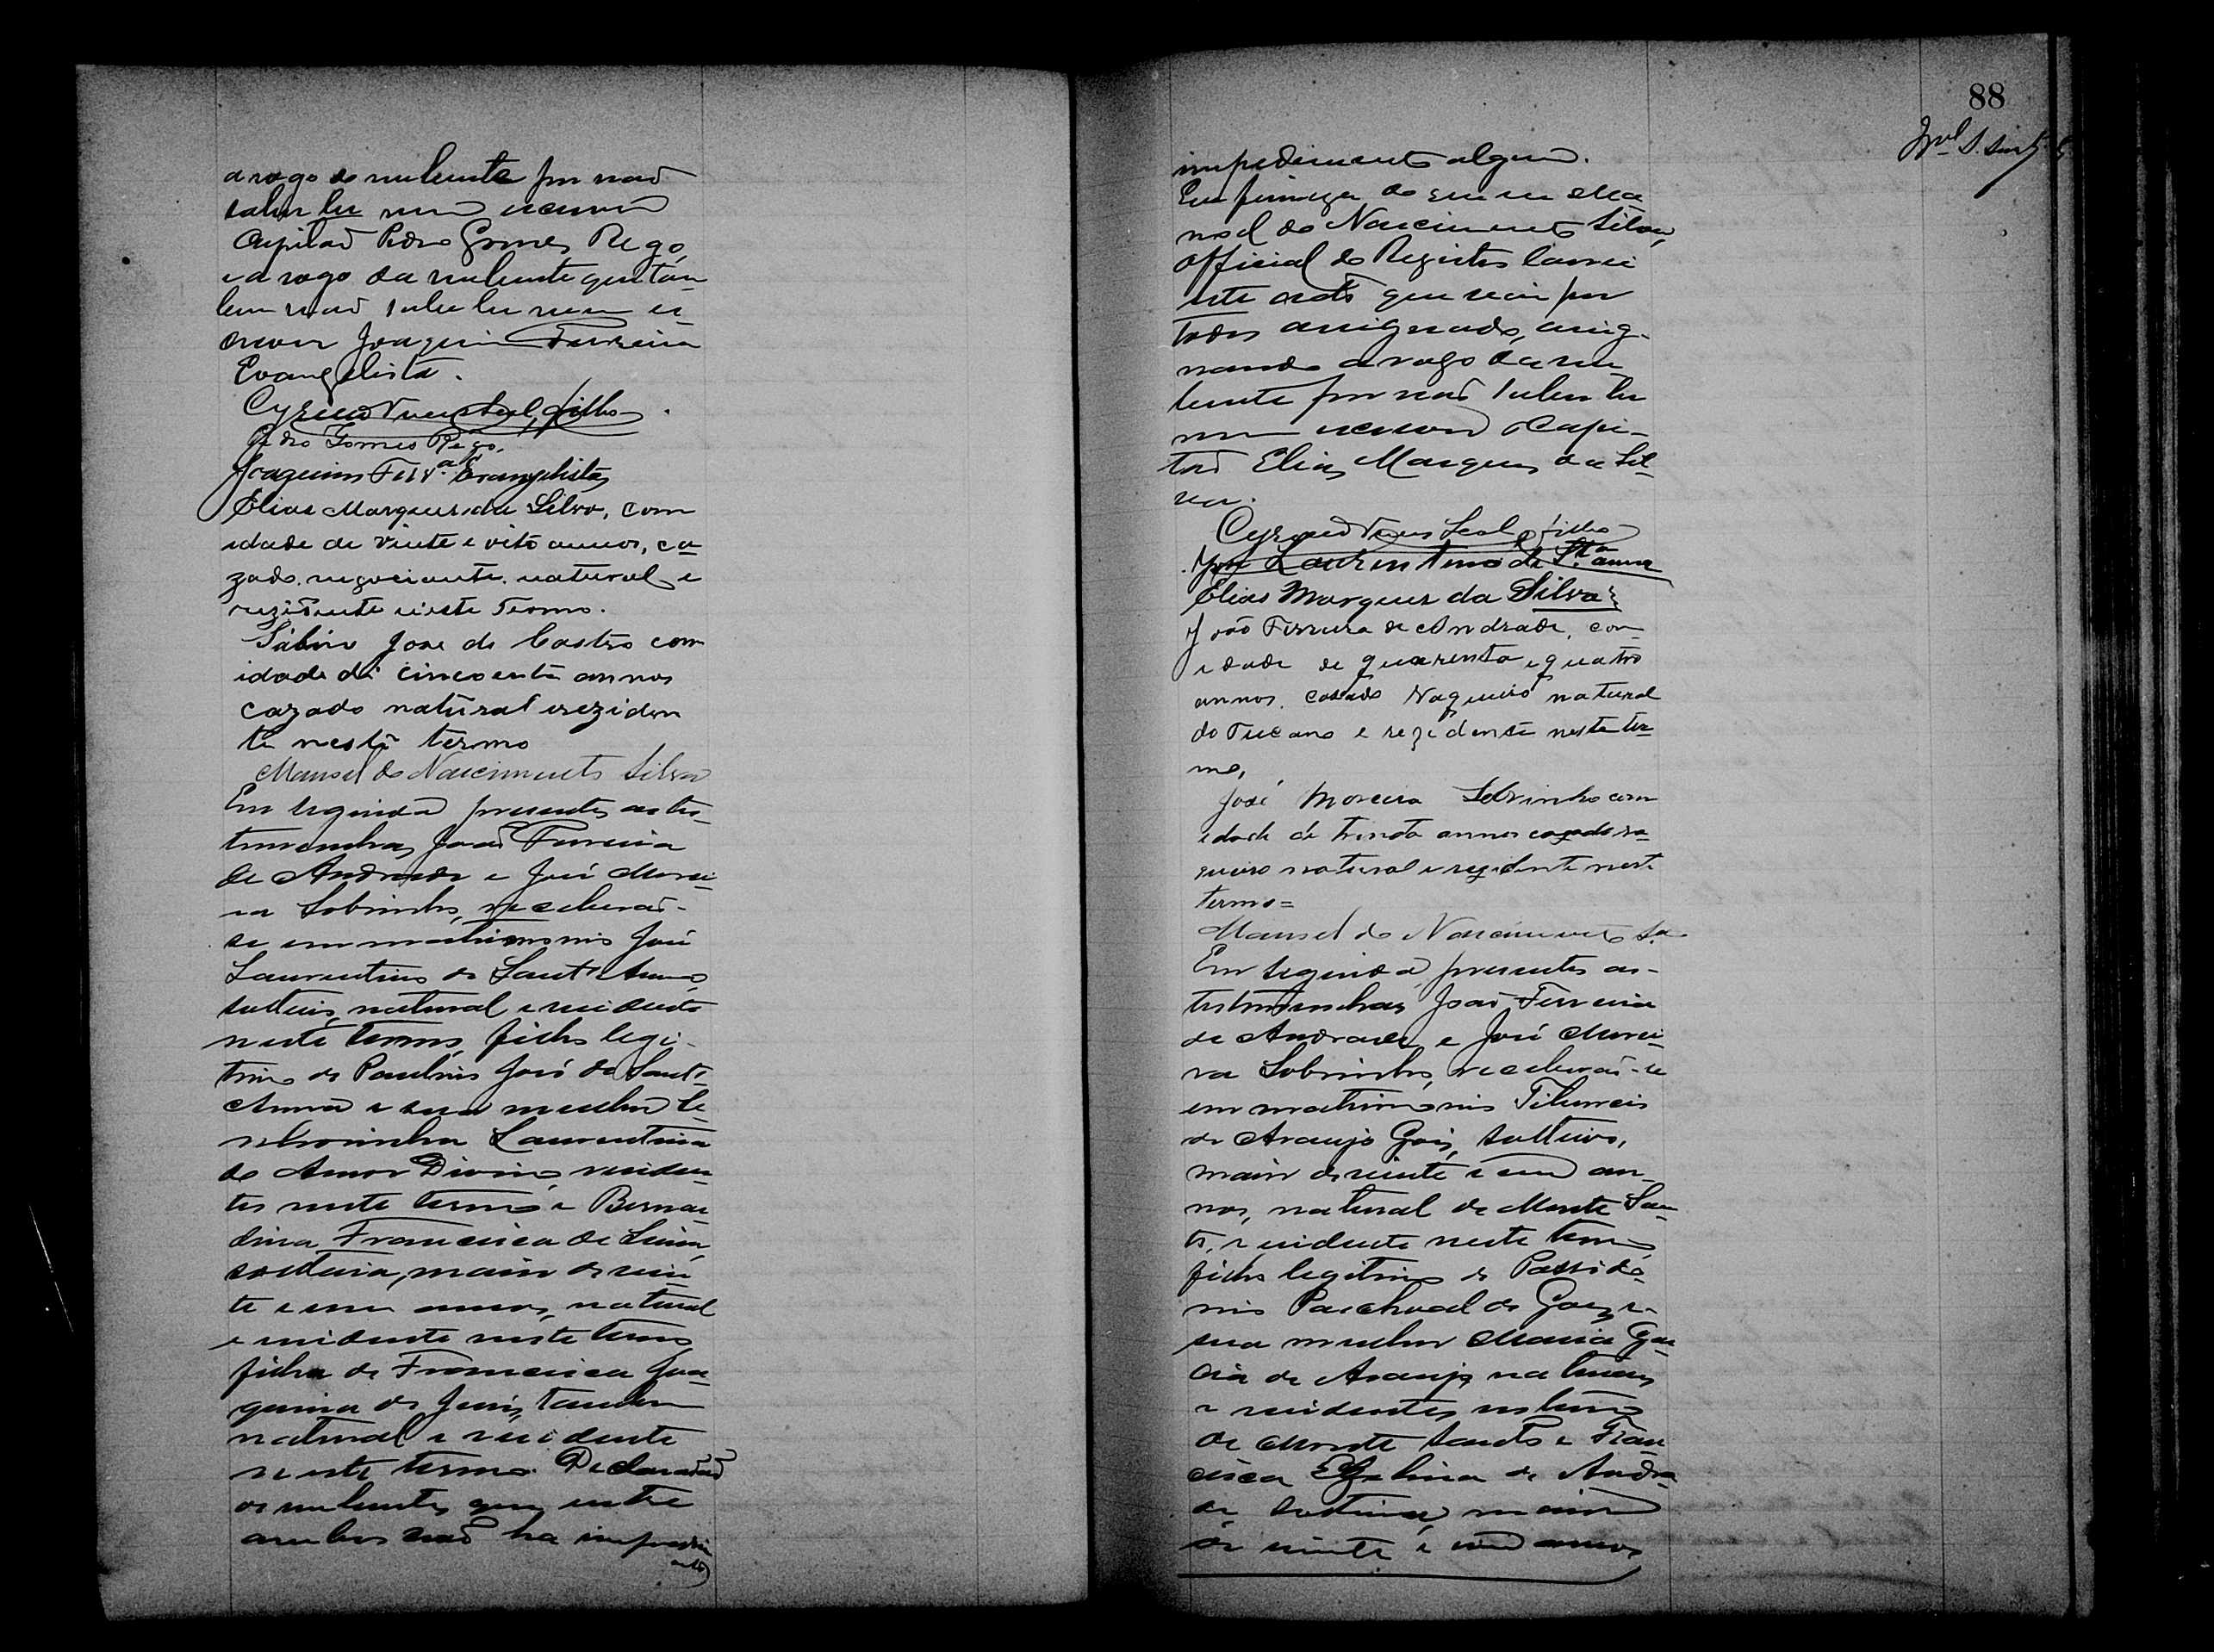 a rogo do nubente por não
saber ler nem escrever
Capitão Pedro Gomes Rego,
e a rogo da nubente que tam
bem não sabe ler nem es
crever Joaquim Ferreira
Evangelista.
Cyrillo Nunes Leal, filho
Pedro Gomes Rego.
Joaquim Ferrª Evangelista
Elias Marques da Silva, com
idade de vinte e oito annos, ca
zado, negociante, natural e
rezidente neste Termo.
Sabino Jose de Castro com
idade de cincoenta annos
cazado natural e reziden
te nesta termo
Manoel do Nascimento Silva
Em seguida presentes as tes
temunhas João Ferreira
de Andrade e José Morei
ra Sobrinho, receberão-
se em matrimonio José
Laurentino de Sant'Anna
solteiro, natural e residente
neste termo, filho legi-
timo de Paulino José de Sant'
Anna e sua mulher
Laurentina
do Amor Divino residen
tes neste termo e Bernar
dina Francisca de
solteira, maior de vin
te e um annos, natural
e residente neste termo
filha de Francisca Joa
quina de Jesus, tambem
natural e residente
neste termo. Declararão
os nubentes que entre
ambos não ha impedim
ento
88
impedimento algum.
Em firmeza do que eu Ma
noel do Nascimento Silva,
official do Registro lavrei
este acto que vai por
todos assignado, assig-
nando a rogo da nu
bente por não saber ler
nem escrever o Capi-
tão Elias Marques da Sil
va.
Cyrillo Nunes Leal, filho
José Laurentino de Stª anna
Elias Marques da Silva
João Ferreira de Andrade, com
idade de quarenta e quatro
annos, casado Vaqueiro natural
do Tucano e rezidente neste ter
mo,
José Moreira Sobrinho com
idade de trinta annos cazado va
queiro natural e rezidente neste
termo=
Manoel do Nascimento Sª
Em seguida, presentes as-
testemunhas João Ferreira
de Andrade e José Morei
ra Sobrinho, receberão-se
em matrimonio Tiburcio
de Araujo Gois, solteiro,
maior de vinte e um an
nos, natural de Monte San
to, residente neste termo
filho legitimo de Possido
nio Paschoal de Goes e
sua mulher Maria Gra
cia de Araujo naturaes
e residentes no termo
de Monte Santo e Fran
cisca de Andra
de solteira, maior
de vinte e um annos